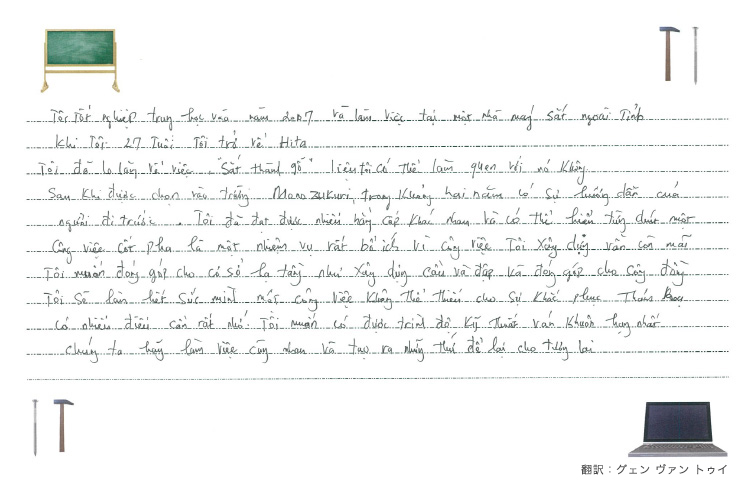 Tôi Tốt nghiệp trung học vào năm 2007 và làm việc tại một nhà máy sắt ngoài Tỉnh
Khi Tôi 27 Tuổi Tôi trở về Hita
Tôi đã lo lắng về việc "Sắt thành gỗ" liệu tôi có thể làm quen với nó không
Sau khi được chọn vào trường Monozukuri, trong khoảng hai năm có sự hướng dẫn của
người đi trước. Tôi đã đạt được nhiều bằng cấp khác nhau và có thể hiểu từng chút một
Công việc cốt pha là một nhiệm vụ rất bổ ích vì công việc Tôi xây dựng vẫn còn mãi
Tôi muốn đóng góp cho cơ sở hạ tầng như xây dựng cầu và đập và đóng góp cho cộng đồng
Tôi sẽ làm hết sức mình một công việc không thể thiếu cho sự khắc phục Thảm họa
có nhiều điều cần rất nhớ. Tôi muốn có được trình độ kỹ thuật ván khuôn hạng nhất
chúng ta hãy làm việc cùng nhau và tạo ra những thứ để lại cho tương lai
翻訳：グェン ヴァン トゥイ